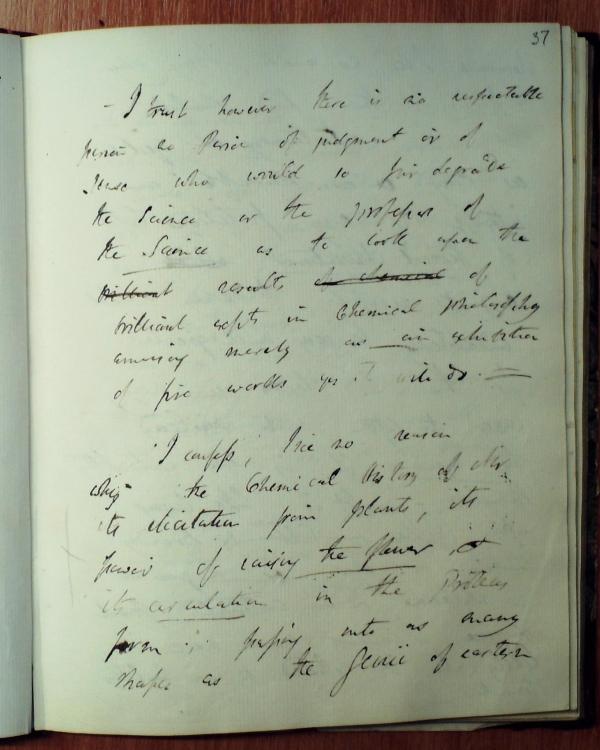 37
- I trust however there is no respectable
person no Person of judgment or of
sense who would so far degrade
the Science or the professor of
the Science as to look upon the
brilliant results of chemical of
brilliant expts in Chemical philosophy
amusing merely as an exhibition
of fire works yes it will do. -
I confess, I see no reason
why the Chemical History of
its elicitation from plants, its
power of raising the flower, &
its circulation in the Proteus
form passing into as many
shapes as the Genii of eastern